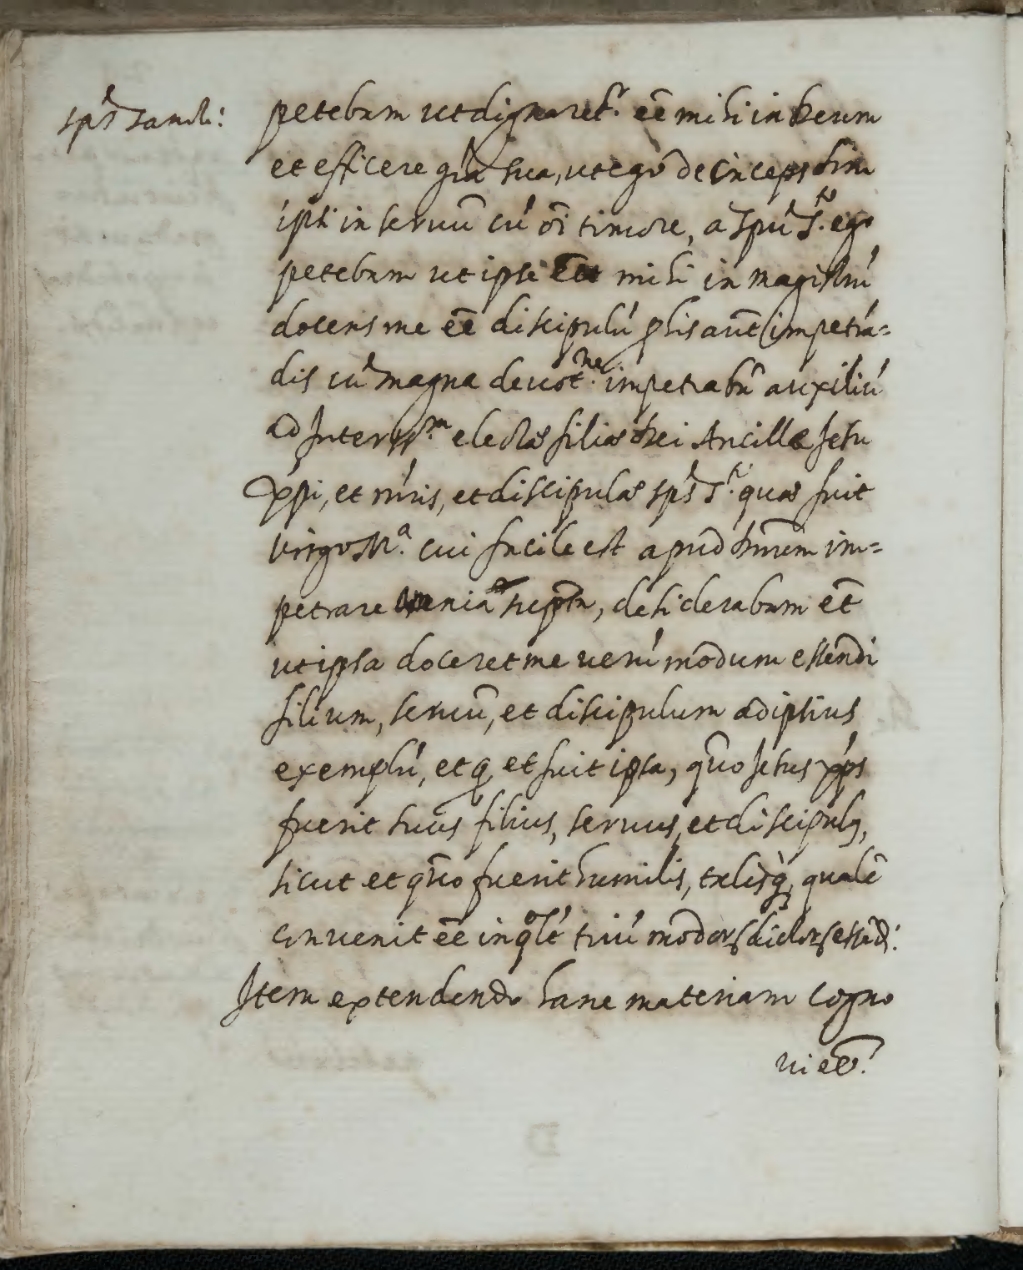 sp̄s sancti:
petebam ut dignaret.r eē mihi in herum
et efficere gr̄a sua, ut ego deinceps sim
ipsi in seruū cū oī timore, a Spū S.to ego
petebam ut ipse eēt mihi in magistrū
docens me eē discipulū
dis cū magna deuot.ne impetrabā auxiliū
ad electas filias Dei Ancillæ Jesu
Xp̄i, et nr̄is, et discipulas sp̄s S.ti quas fuit
Virgo M.a cui facile est apud im=
petrare desiderabam et̄
ut ipsa doceret me uerū modum essendi
filium, seruū, et discipulum ad ipsius
exemplū, et q et fuit ipsa, quō Jesus xp̄s
fuerit suus filius, seruus, et discipulq,
sicut et quō fuerit humilis, talisq, qualē
conuenit eē in qolt triū modorꝝ dictorꝝ essēd:
Item extendendo hanc materiam cogno
ui eē: